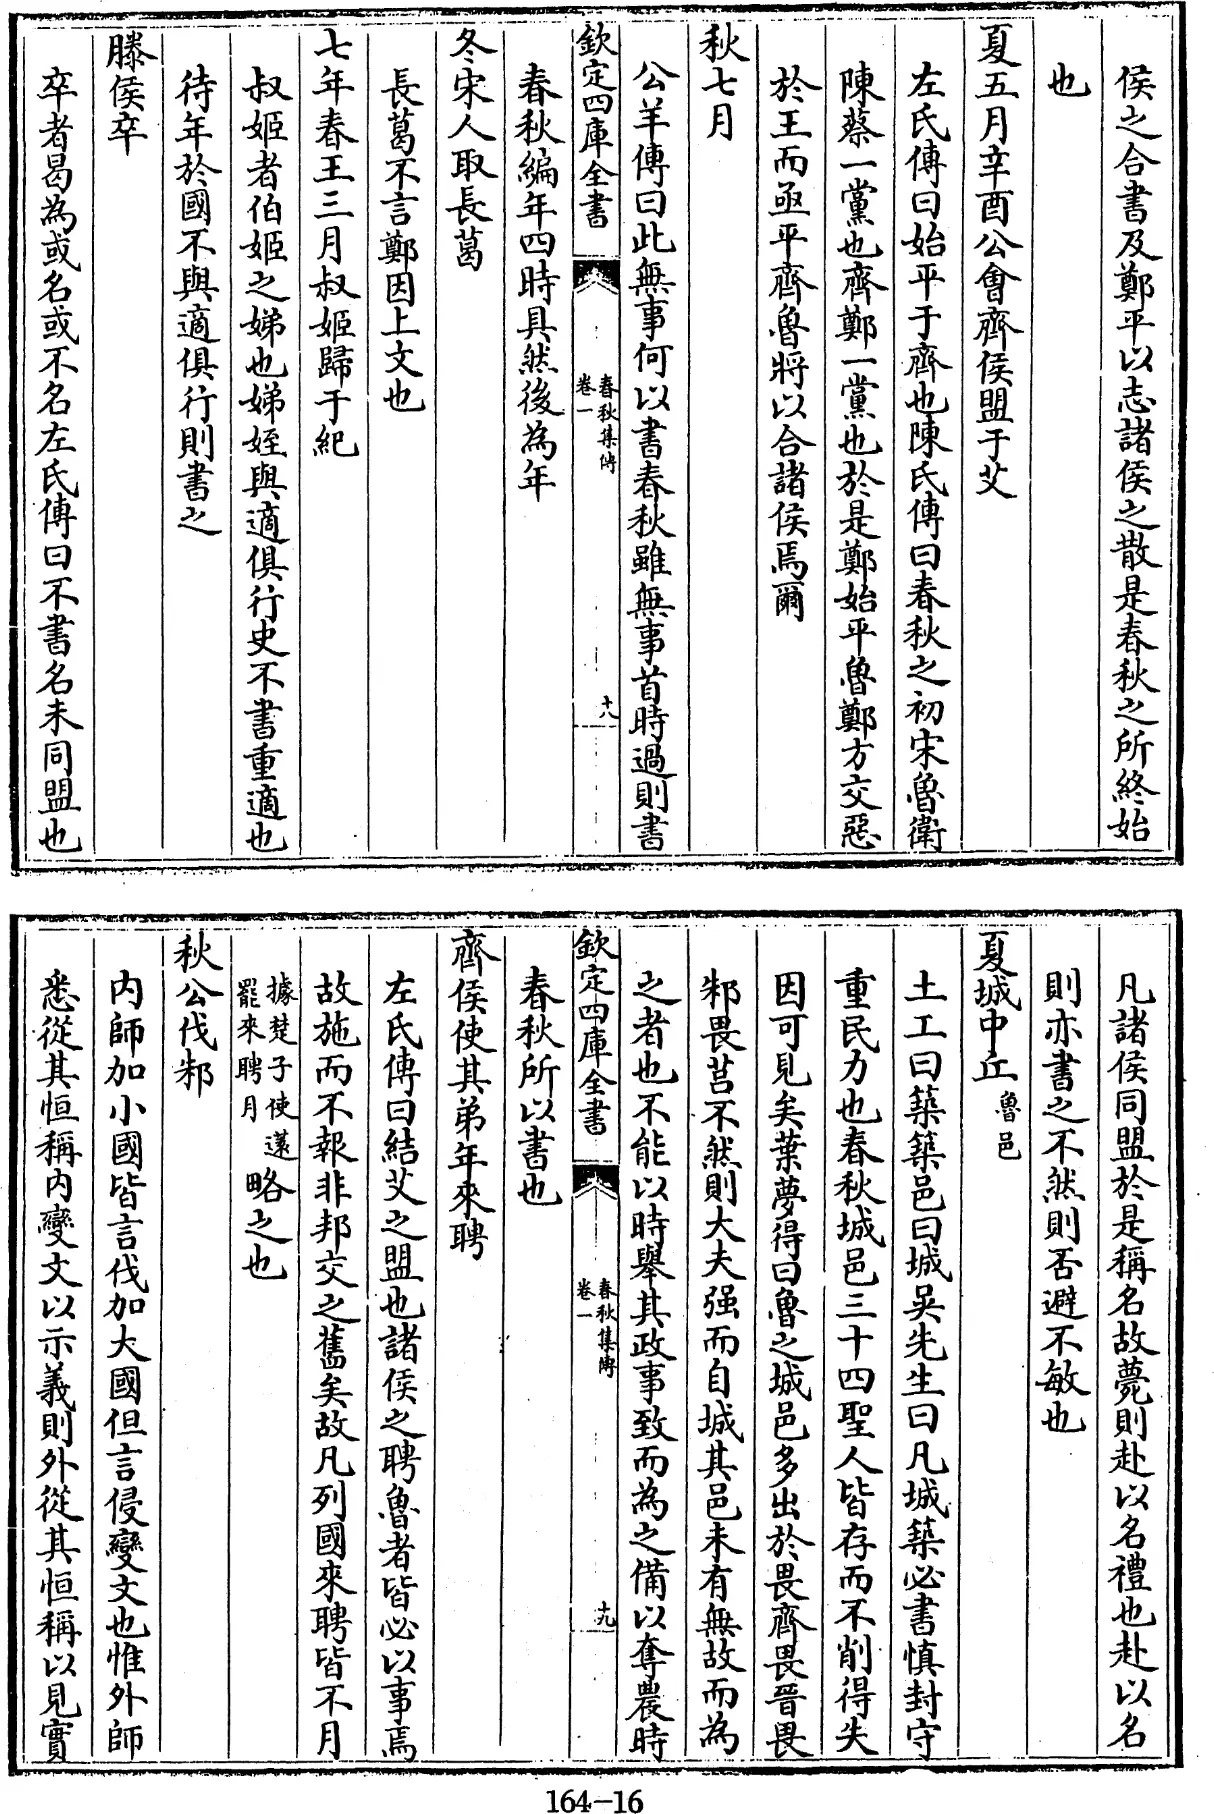 侯之合書及鄭平以志諸侯之散是春秋之所終始
也
夏五月辛酉公會齊侯盟于艾
左氏傳曰始平于齊也陳氏傳曰春秋之初宋魯衛
陳蔡一黨也齊鄭一黨也於是鄭始平魯鄭方交惡
於王而亟平齊魯將以合諸侯焉爾
秋七月
公羊傳曰此無事何以書春秋雖無事首時過則書
欽定四庫全書
春秋集傳
卷一
十八
春秋編年四時具然後為年
冬宋人取長葛
長葛不言鄭因上文也
七年春王三月叔姬歸于紀
叔姬者伯姬之娣也娣姪與適俱行史不書重適也
待年於國不與適俱行則書之
滕侯卒
卒者曷為或名或不名左氏傳曰不書名未同盟也
凡諸侯同盟於是稱名故薨則赴以名禮也赴以名
則亦書之不然則否避不敏也
夏城中丘魯邑
土工曰築築邑曰城吳先生曰凡城築必書慎封守
重民力也春秋城邑三十四聖人皆存而不削得失
因可見矣葉夢得曰魯之城邑多出於畏齊畏晉畏
邾畏莒不然則大夫强而自城其邑未有無故而為
之者也不能以時舉其政事致而為之備以奪農時
欽定四庫全書
春秋集傳
卷一
十九
春秋所以書也
齊侯使其弟年來聘
左氏傳曰結艾之盟也諸侯之聘魯者皆必以事焉
故施而不報非邦交之舊矣故凡列國來聘皆不月
據楚子使薳
罷來聘月
略之也
秋公伐邾
內師加小國皆言伐加大國但言侵變文也惟外師
悉從其恒稱內變文以示義則外從其恒稱以見實
164-16